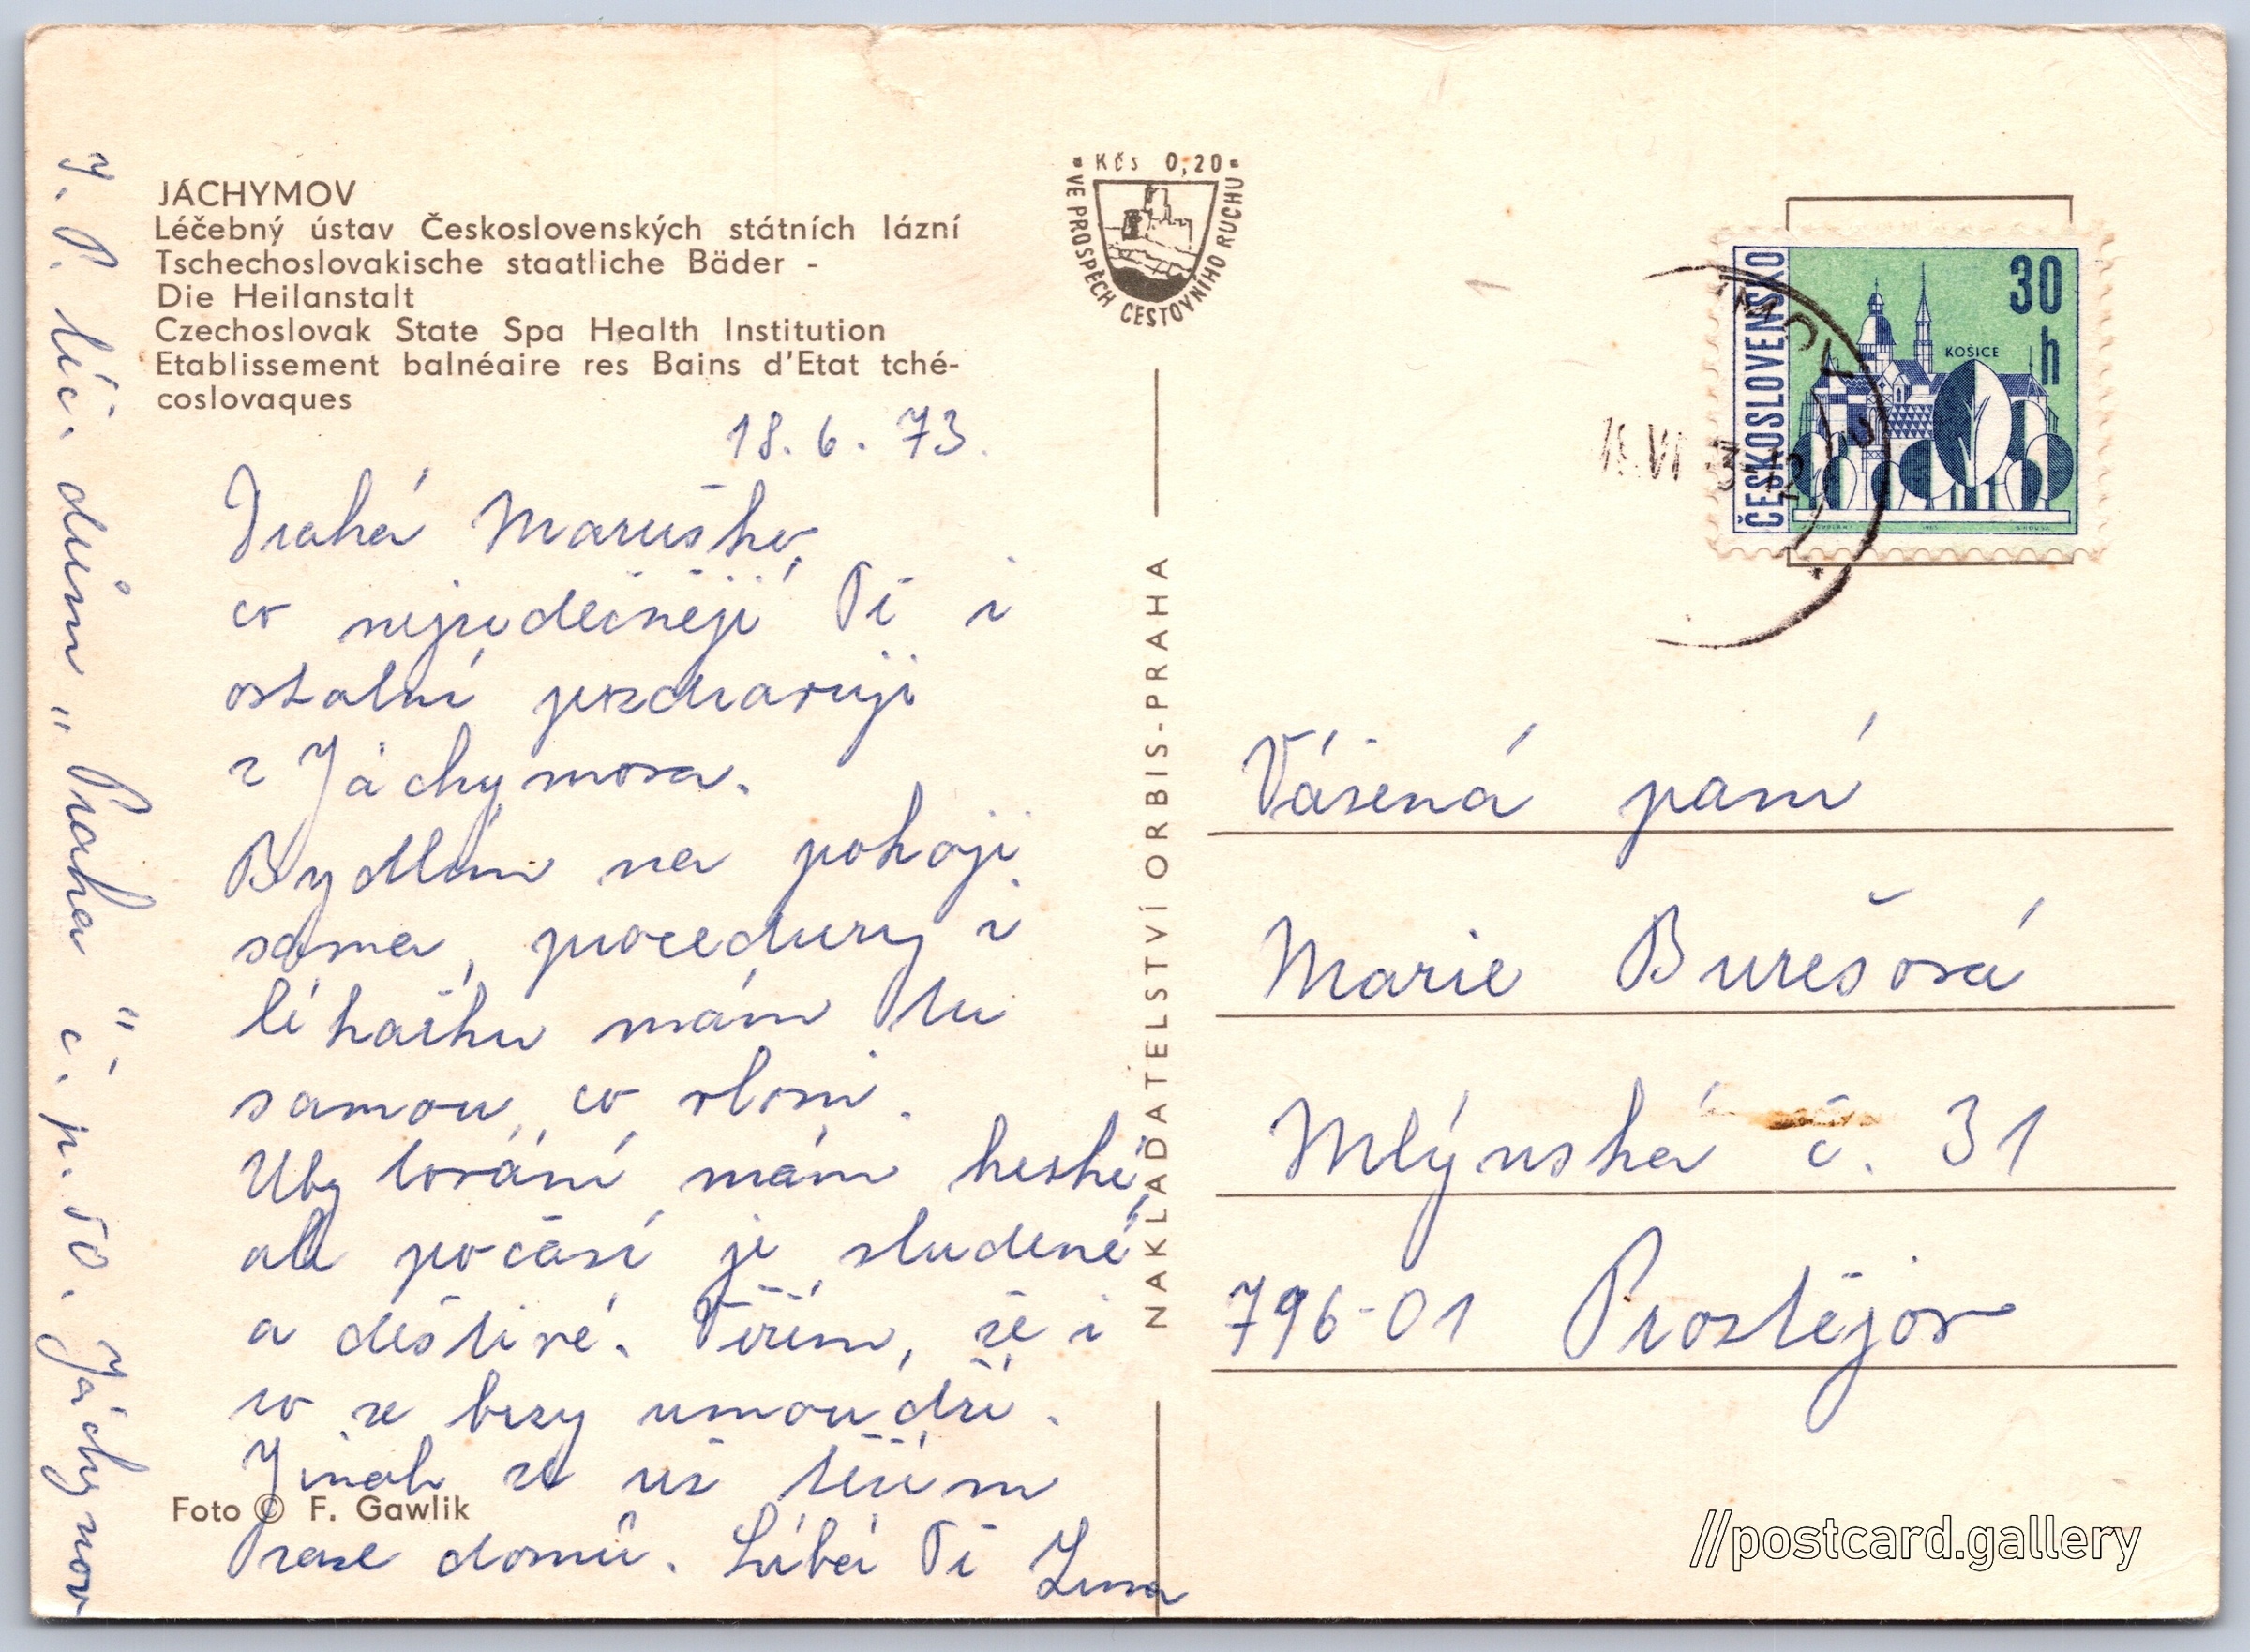 JÁCHYMOV
Léčebný ústav Československých státních lázní
Tschechoslovakische staatliche Bäder -
Die Heilanstalt
Czechoslovak State Spa Health Institution
Etablissement balnéaire res Bains d'Etat tché-
coslovaques
18. 6. 73.
Drahá Maruško,
co nejsrdečněji Tě i
ostatní pozdravuji
z Jáchymova.
Bydlím na pokoji
sama, procedury i
lékařku mám tu
samou, co vloni.
Ubytování mám hezké,
ale počasí je studené
a deštivé. Věřím, že i
to se brzy umoudří.
Jinak se už těším
zase domů. Líbá Tě
Foto © F. Gawlik
léč. dům „Praha" č. p. 50. Jáchymov
Kčs 0,20
VE PROSPĚCH CESTOVNÍHO RUCHU
NAKLADATELSTVÍ ORBIS-PRAHA
ČESKOSLOVENSKO
30 h
KOŠICE
Vážená paní
Marie Burešová
Mlýnská č. 31
796-01 Prostějov
//postcard.gallery